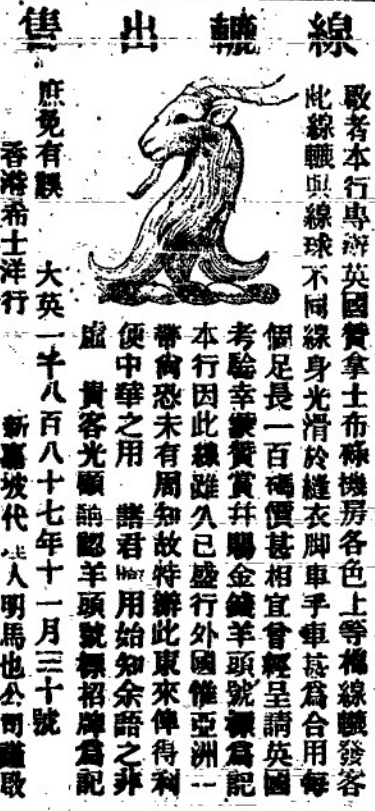 線轆出售
敬者本行專辦英國贊拿士布碌機房各色上等機線轆發客
此線轆與線球不同線身光滑於縫衣脚車手車甚爲合用每
個足長一百碼價甚相宜曾經呈請英國
考驗幸蒙贊賞幷賜金錢羊頭號標爲記
本行因此線雖久已盛行外國惟亞洲一
帶尙恐未有周知故特辦此東來俾得利
便中華之用　諸君用始知余語之非
虛　貴客光顧請認羊頭號標招牌爲記
庶免有誤　大英一千八百八十七年十一月三十號
香港希士洋行　新嘉坡代人明馬也公司謹啟